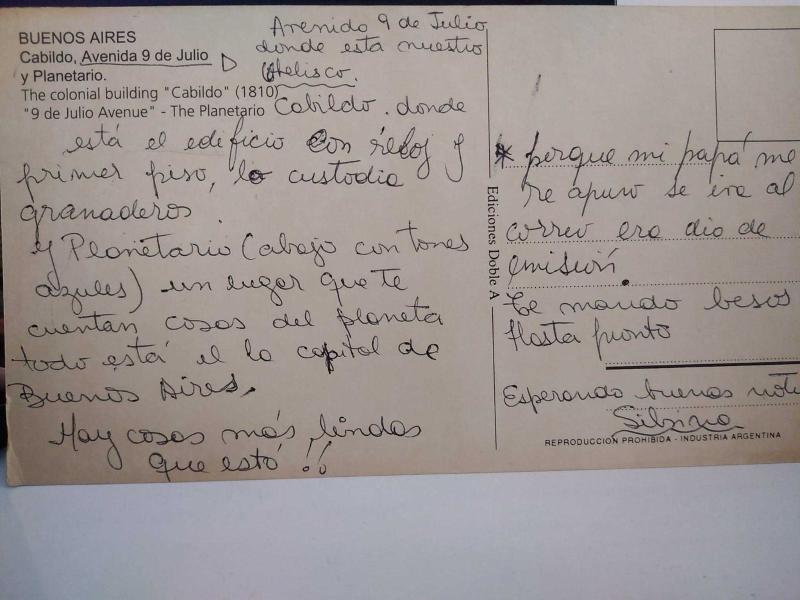 BUENOS AIRES
Cabildo, Avenida 9 de Julio
y Planetario.
The colonial building "Cabildo" (1810)
"9 de Julio Avenue" - The Planetario
Avenida 9 de Julio
donde está nuestro
Obelisco.
Cabildo. donde
está el edificio con reloj y
primer piso, lo custodia
granaderos.
y Planetario (abajo con tonos
azules) un lugar que te
cuentan cosas del planeta
todo está el la capital de
Buenos Aires.
Hay cosas más lindas
que esto !!
Ediciones Doble A
* porque mi papá me
re apuro se iva al
correo era dia de
emisión.
Te mando besos
Hasta pronto
Esperando buenas
Silvina
REPRODUCCION PROHIBIDA - INDUSTRIA ARGENTINA